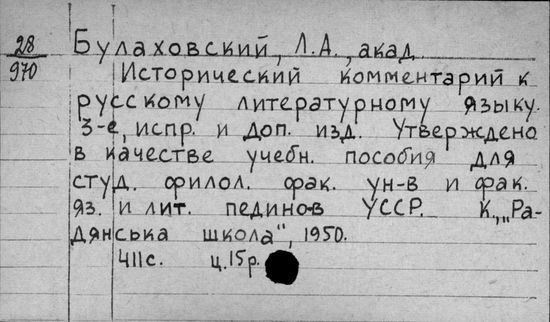 28 Булаховский, Л.А., акад.
970 Исторический комментарий к
русскому литературному языку.
3-е, испр. и доп. изд. Утверждено
в качестве учебн. пособия для
студ. филол. фак. ун-в и фак.
яз. и лит. пединов УССР. К., „Ра-
дянська школа", 1950.
411с. ц.15р.